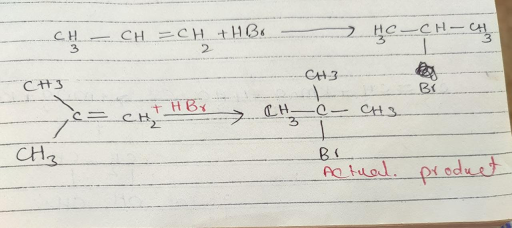 CH3 — CH = CH2 + HBr ⟶ H3C — CH — CH3
Br
CH3
CH3
C = CH2 + HBr ⟶ CH3 — C — CH3
CH3
Br
Actual. product